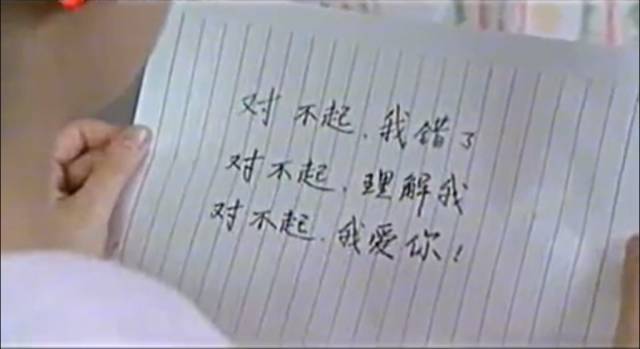 对不起，我错了
对不起，理解我
对不起，我爱你！